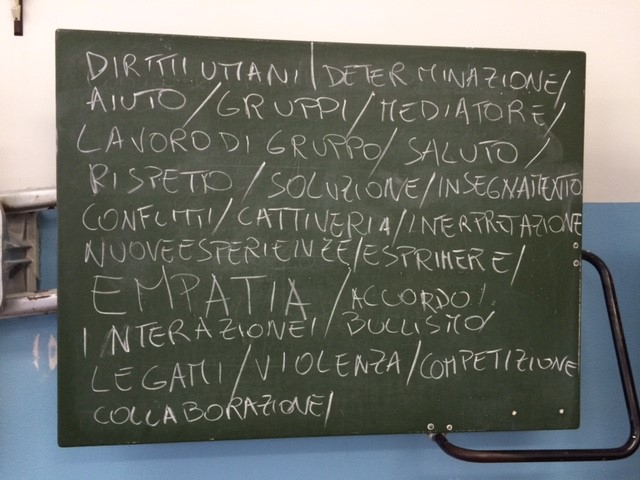 DIRITTI UMANI / DETERMINAZIONE /
AIUTO / GRUPPI / MEDIATORE /
LAVORO DI GRUPPO / SALUTO /
RISPETTO / SOLUZIONE / INSEGNAMENTO
CONFLITTI / CATTIVERIA / INTERPRETAZIONE
NUOVE ESPERIENZE / ESPRIMERE /
EMPATIA / ACCORDO /
INTERAZIONE / BULLISMO /
LEGAMI / VIOLENZA / COMPETIZIONE
COLLABORAZIONE /